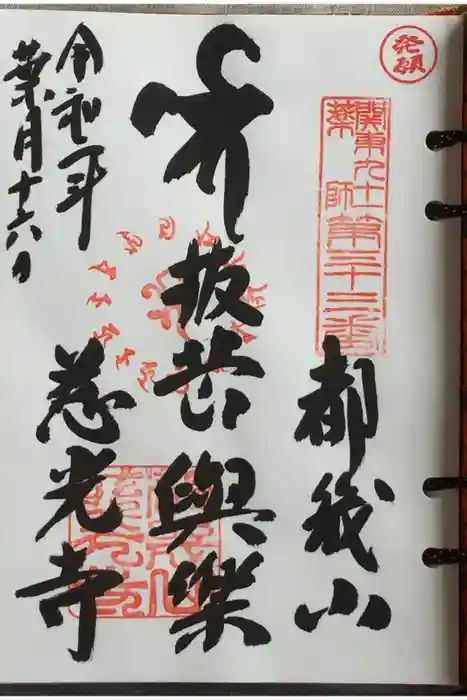 発願
関東九十一
薬師第三十二番
都幾山
抜苦與樂
慈光寺
令和二年
葉月十六日